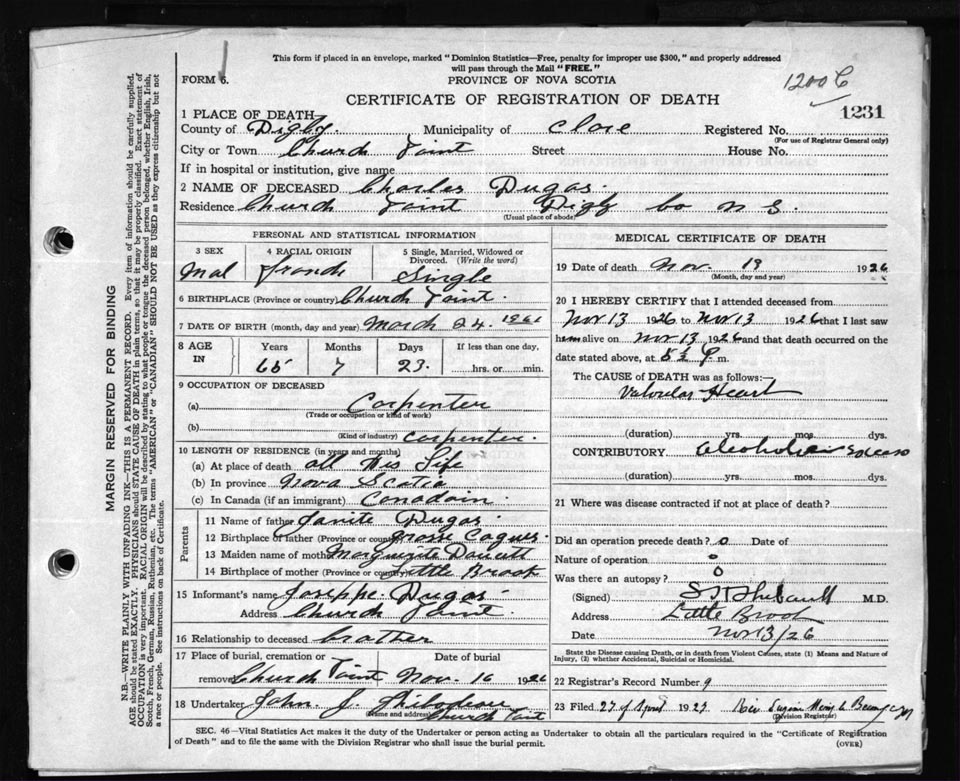 This form if placed in an envelope, marked "Dominion Statistics—Free, penalty for improper use $300," and properly addressed
will pass through the Mail "FREE."
FORM 6.
PROVINCE OF NOVA SCOTIA
1200 C
CERTIFICATE OF REGISTRATION OF DEATH
1231
1 PLACE OF DEATH
County of Digby. Municipality of Clare Registered No.
(For use of Registrar General only)
City or Town Church Point Street House No.
If in hospital or institution, give name
2 NAME OF DECEASED Charles Dugas.
Residence Church Point Digby Co N S.
(Usual place of abode)
PERSONAL AND STATISTICAL INFORMATION
3 SEX 4 RACIAL ORIGIN 5 Single, Married, Widowed or Divorced. (Write the word)
Mal french Single
6 BIRTHPLACE (Province or country) Church Point.
7 DATE OF BIRTH (month, day and year) March 24. 1861
8 AGE IN Years Months Days If less than one day,
65 7 23. hrs. or min.
9 OCCUPATION OF DECEASED
(a) Carpenter
(Trade or occupation or kind of work)
(b) carpenter.
(Kind of industry)
10 LENGTH OF RESIDENCE (in years and months)
(a) At place of death all His Life
(b) In province Nova Scotia
(c) In Canada (if an immigrant) Canadain.
Parents
11 Name of father Dugas
12 Birthplace of father (Province or country) Grosse Coques.
13 Maiden name of mother Marguerite Doucett
14 Birthplace of mother (Province or country) Little Brook
15 Informant's name Joseppe Dugas
Address Church Point.
16 Relationship to deceased brother
17 Place of burial, cremation or removal Date of burial
Church Point Nov. 16 1926
18 Undertaker John. J. Thibodeau
(Name and address) Church Point
MEDICAL CERTIFICATE OF DEATH
19 Date of death Nov. 13 1926
(Month, day and year)
20 I HEREBY CERTIFY that I attended deceased from
Nov 13 1926 to Nov 13 1926 that I last saw
him alive on Nov 13 1926 and that death occurred on the
date stated above, at 5½ P m.
The CAUSE of DEATH was as follows:
Valvular Heart
(duration) yrs. mos. dys.
CONTRIBUTORY
(duration) yrs. mos. dys.
21 Where was disease contracted if not at place of death?
Did an operation precede death? 0 Date of
Nature of operation 0
Was there an autopsy? 0
(Signed) Thibault M.D.
Address Little Brook
Date Nov 13/26
State the Disease causing Death, or in death from Violent Causes, state (1) Means and Nature of
Injury, (2) whether Accidental, Suicidal or Homicidal.
22 Registrar's Record Number 9
23 Filed 27 of April 1927
(Division Registrar)
SEC. 46—Vital Statistics Act makes it the duty of the Undertaker or person acting as Undertaker to obtain all the particulars required in the "Certificate of Registration
of Death" and to file the same with the Division Registrar who shall issue the burial permit.
(OVER)
MARGIN RESERVED FOR BINDING
N.B.—WRITE PLAINLY WITH UNFADING INK—THIS IS A PERMANENT RECORD. Every item of information should be carefully supplied.
AGE should be stated EXACTLY. PHYSICIANS should STATE CAUSE OF DEATH in plain terms, so that it may be properly classified. Exact statement of
OCCUPATION is very important. RACIAL ORIGIN will be described by stating to what people or tongue the deceased person belonged, whether English, Irish,
Scotch, French, German, Russian, Ruthenian, etc. The terms "AMERICAN" or "CANADIAN" SHOULD NOT BE USED as they express citizenship but not
a race or people. See instructions on back of Certificate.